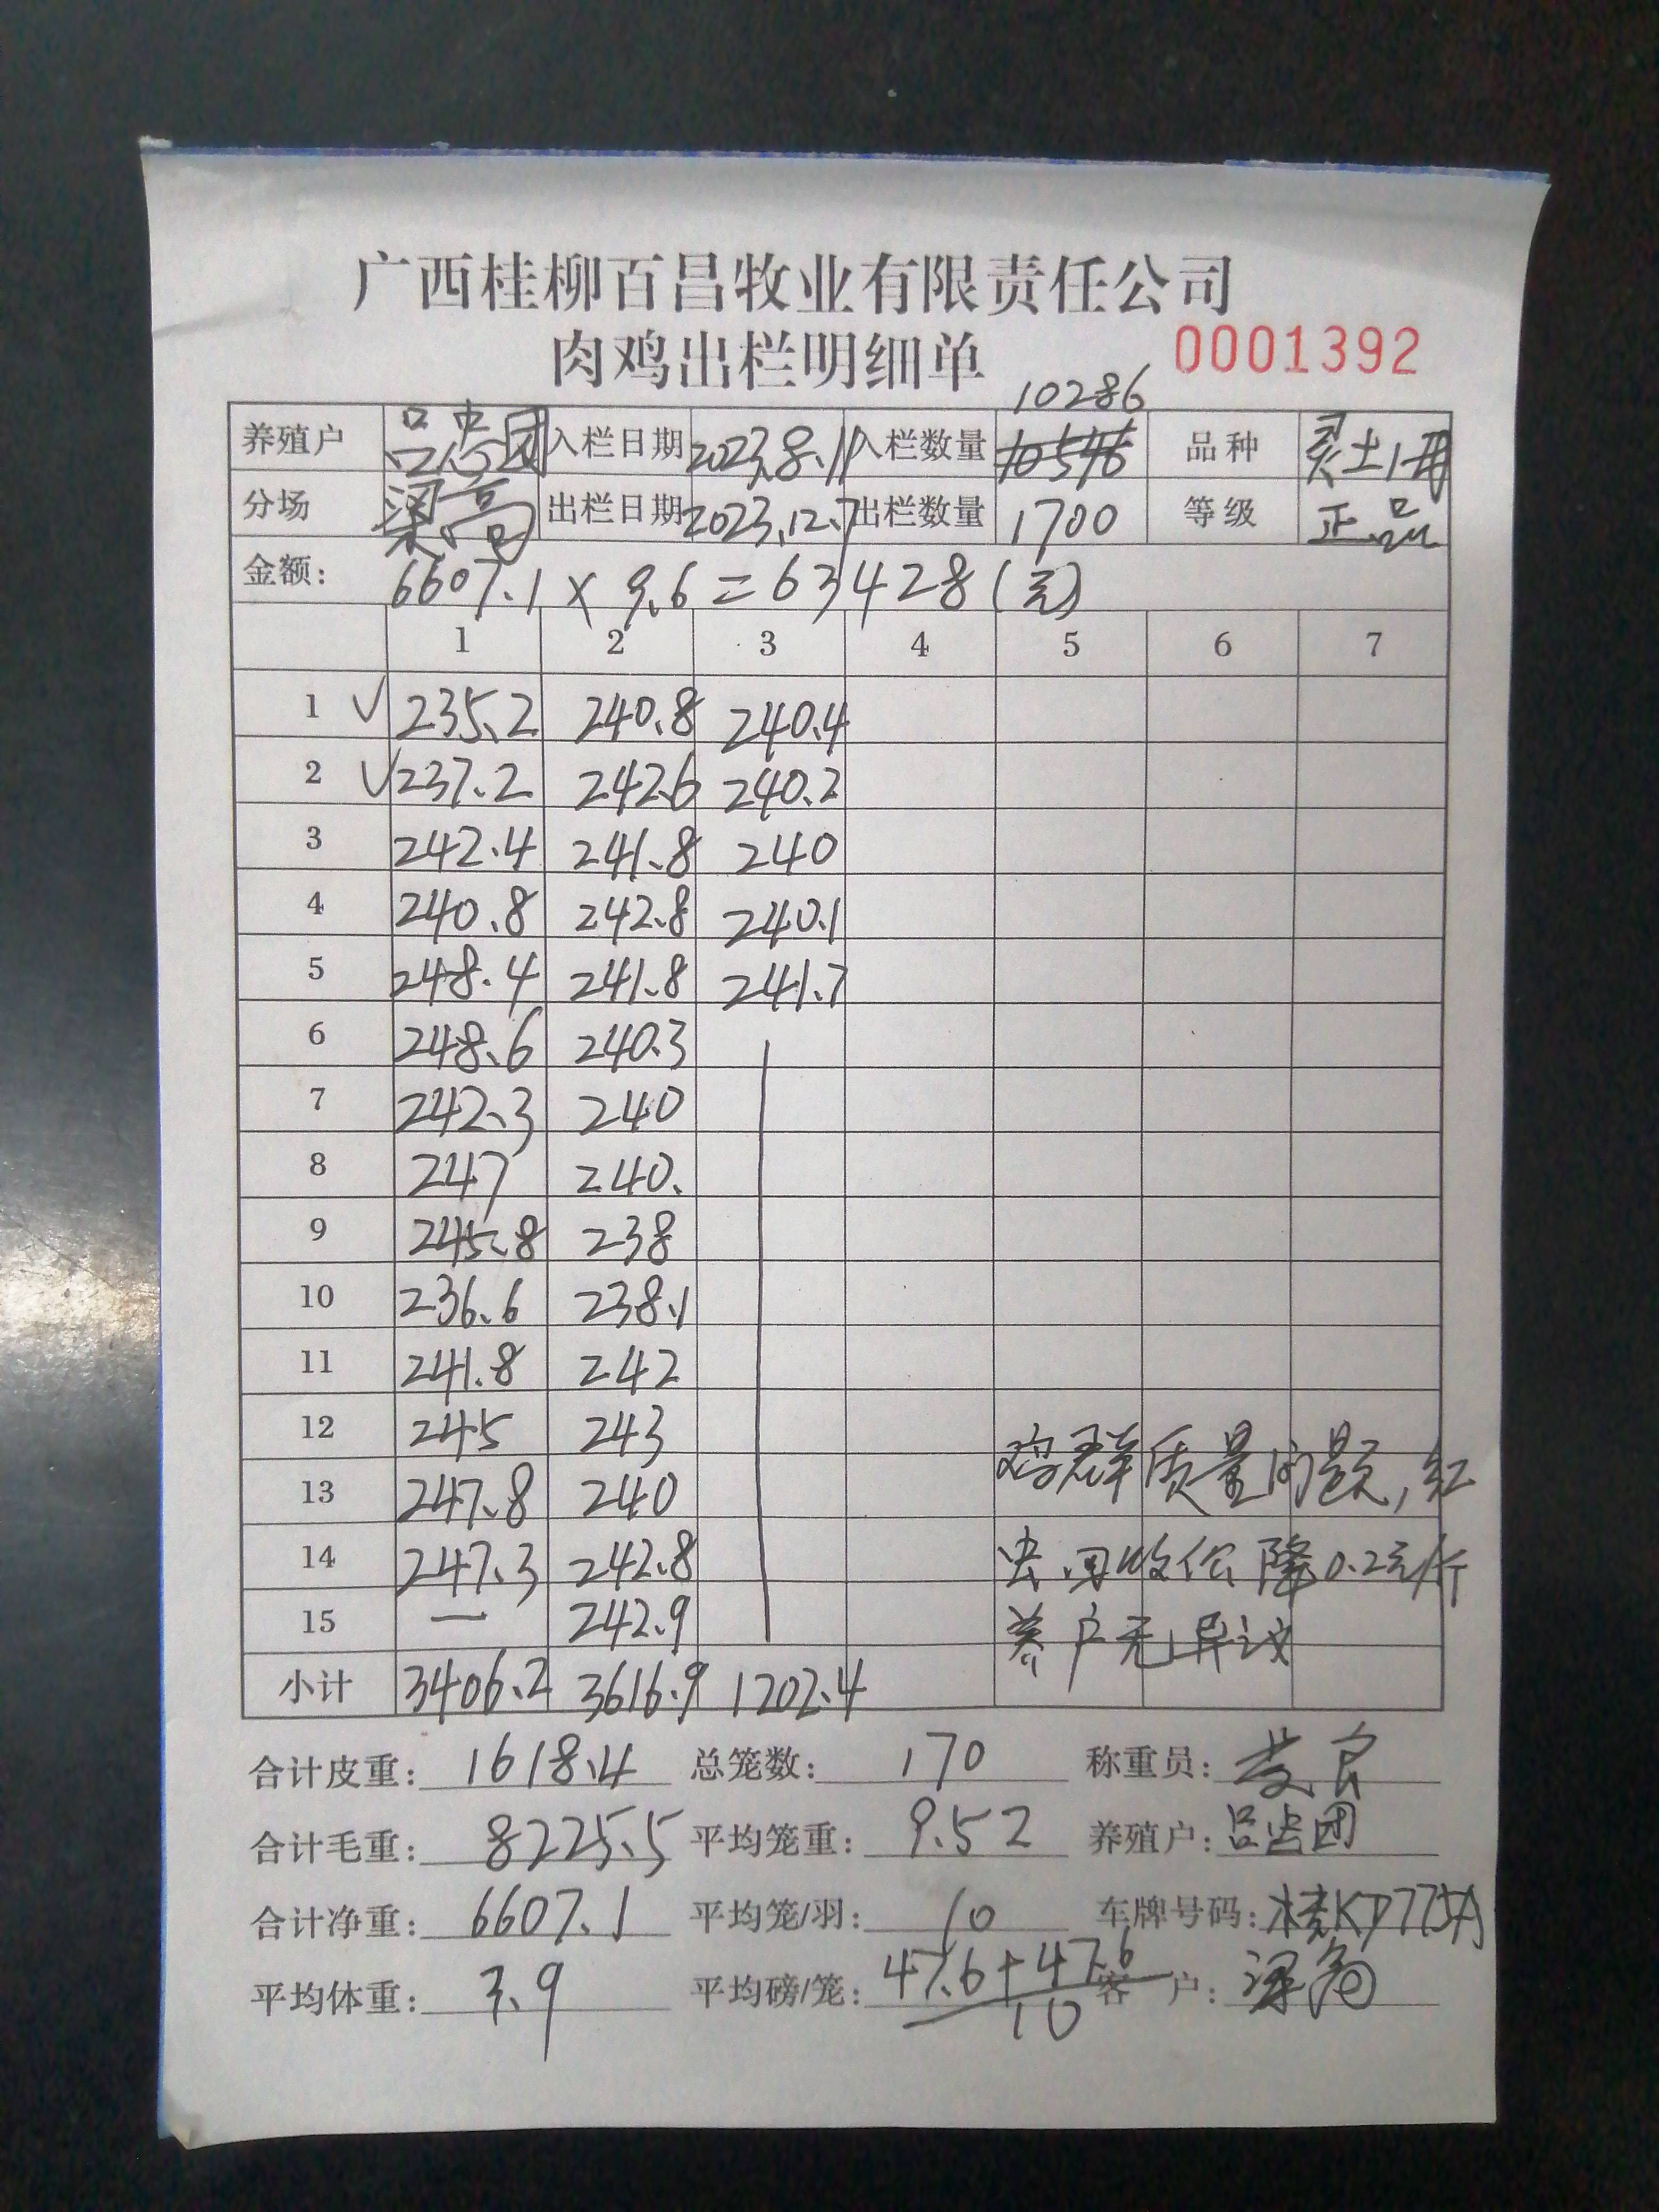 广西桂柳百昌牧业有限责任公司
肉鸡出栏明细单 0001392
10286
养殖户 吕忠团 入栏日期 2023.8.11 入栏数量 10546 品种
分场 梁亮 出栏日期 2023.12.7 出栏数量 1700 等级 正品
金额: 6607.1 x 9.6 = 63428 (元)
1 2 3 4 5 6 7
1 √ 235.2 240.8 240.4
2 √ 237.2 242.6 240.2
3 242.4 241.8 240
4 240.8 242.8 240.1
5 248.4 241.8 241.7
6 248.6 240.3
7 242.3 240
8 247 240.
9 245.8 238
10 236.6 238.1
11 241.8 242
12 245 243
13 247.8 240 鸡群质量问题,红
14 247.3 242.8 虫,回收价降0.2元/斤
15 — 242.9 养户无异议
小计 3406.2 3616.9 1202.4
合计皮重: 1618.4 总笼数: 170 称重员:
合计毛重: 8225.5 平均笼重: 9.52 养殖户: 吕忠团
合计净重: 6607.1 平均笼/羽: 10 车牌号码:
平均体重: 3.9 平均磅/笼: 47.6+47.6 客户:
10